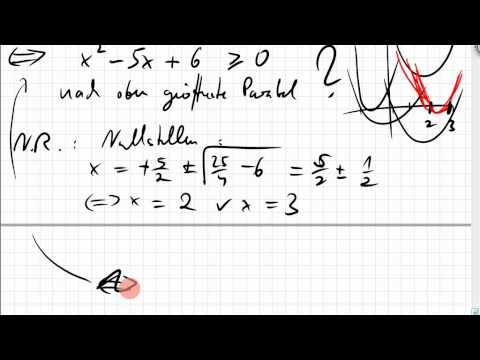 ⇔ x² - 5x + 6 ≥ 0 ?
nach oben geöffnete Parabel
2 3
N.R.: Nullstellen:
x = + 5/2 ± √(25/4 - 6) = 5/2 ± 1/2
⇔ x = 2 ∨ x = 3